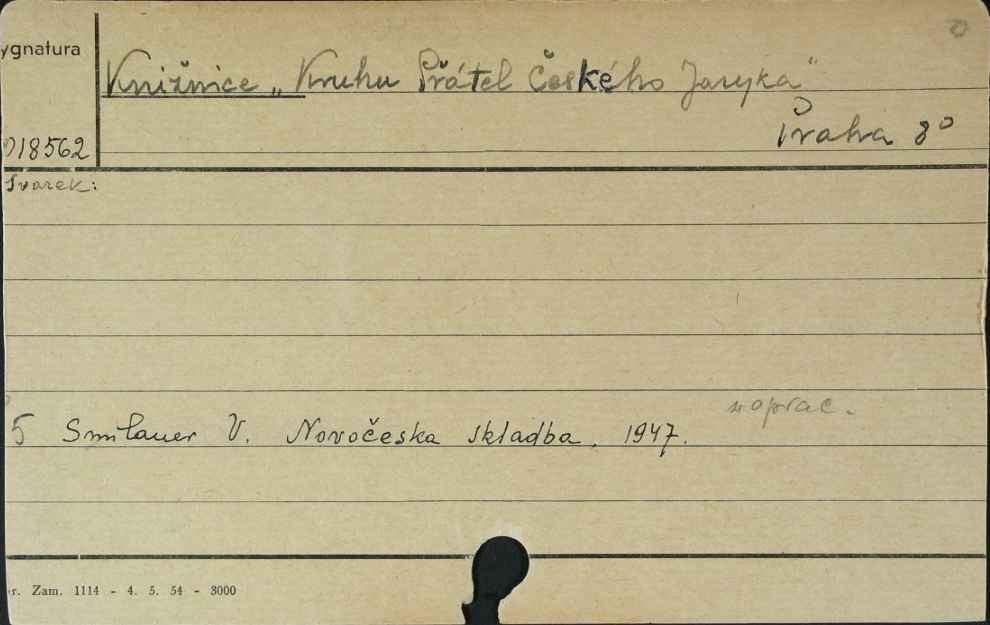 ygnatura
Knižnice „Kruhu Přátel Českého Jazyka"
Praha 8°
018562
Svazek:
w oprac.
5 Smilauer V. Novočeska skladba. 1947.
r. Zam. 1114 - 4. 5. 54 - 3000